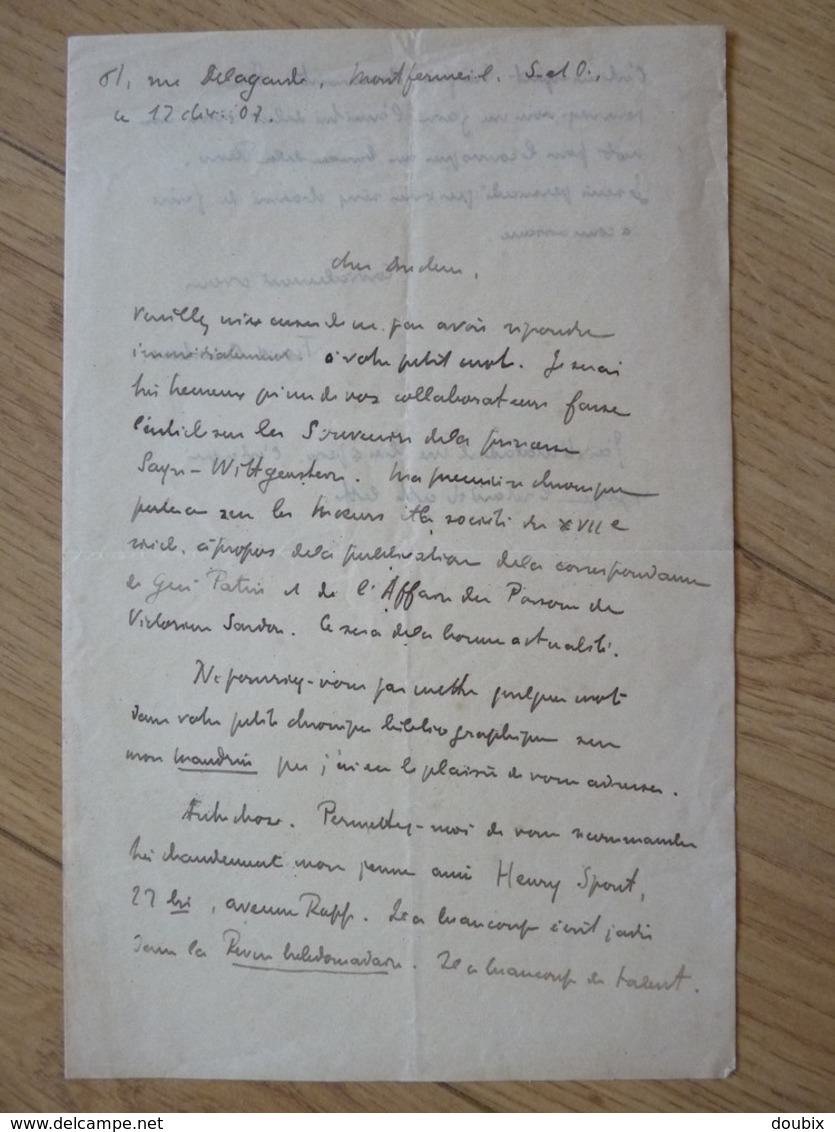 61, rue Delagarde, Montfermeil. S. et O.,
ce 12 déc. 07.
Cher
Veuillez m'excuser de ne pas avoir répondu
immédiatement à votre petit mot. Je serai
très heureux qu'un de vos collaborateurs fasse
l'article sur les Souvenirs de la princesse
Sayn-Wittgenstein. Ma première chronique
portera sur les Mœurs et la société du XVIIe
siècle, à propos de la publication de la correspondance
de Gui Patin et de l'Affaire des Poisons de
Victorien Sardou. Ce sera de la bonne actualité.
Ne pourriez-vous pas mettre quelques mots
dans votre petite chronique bibliographique sur
mon Mandrin que j'ai eu le plaisir de vous adresser.
Autre chose. Permettez-moi de vous recommander
très chaudement mon jeune ami Henry Spont,
27 bis, avenue Rapp. Il a beaucoup écrit jadis
dans la Revue hebdomadaire. Il a beaucoup de talent.
www.delcampe.net
doubix